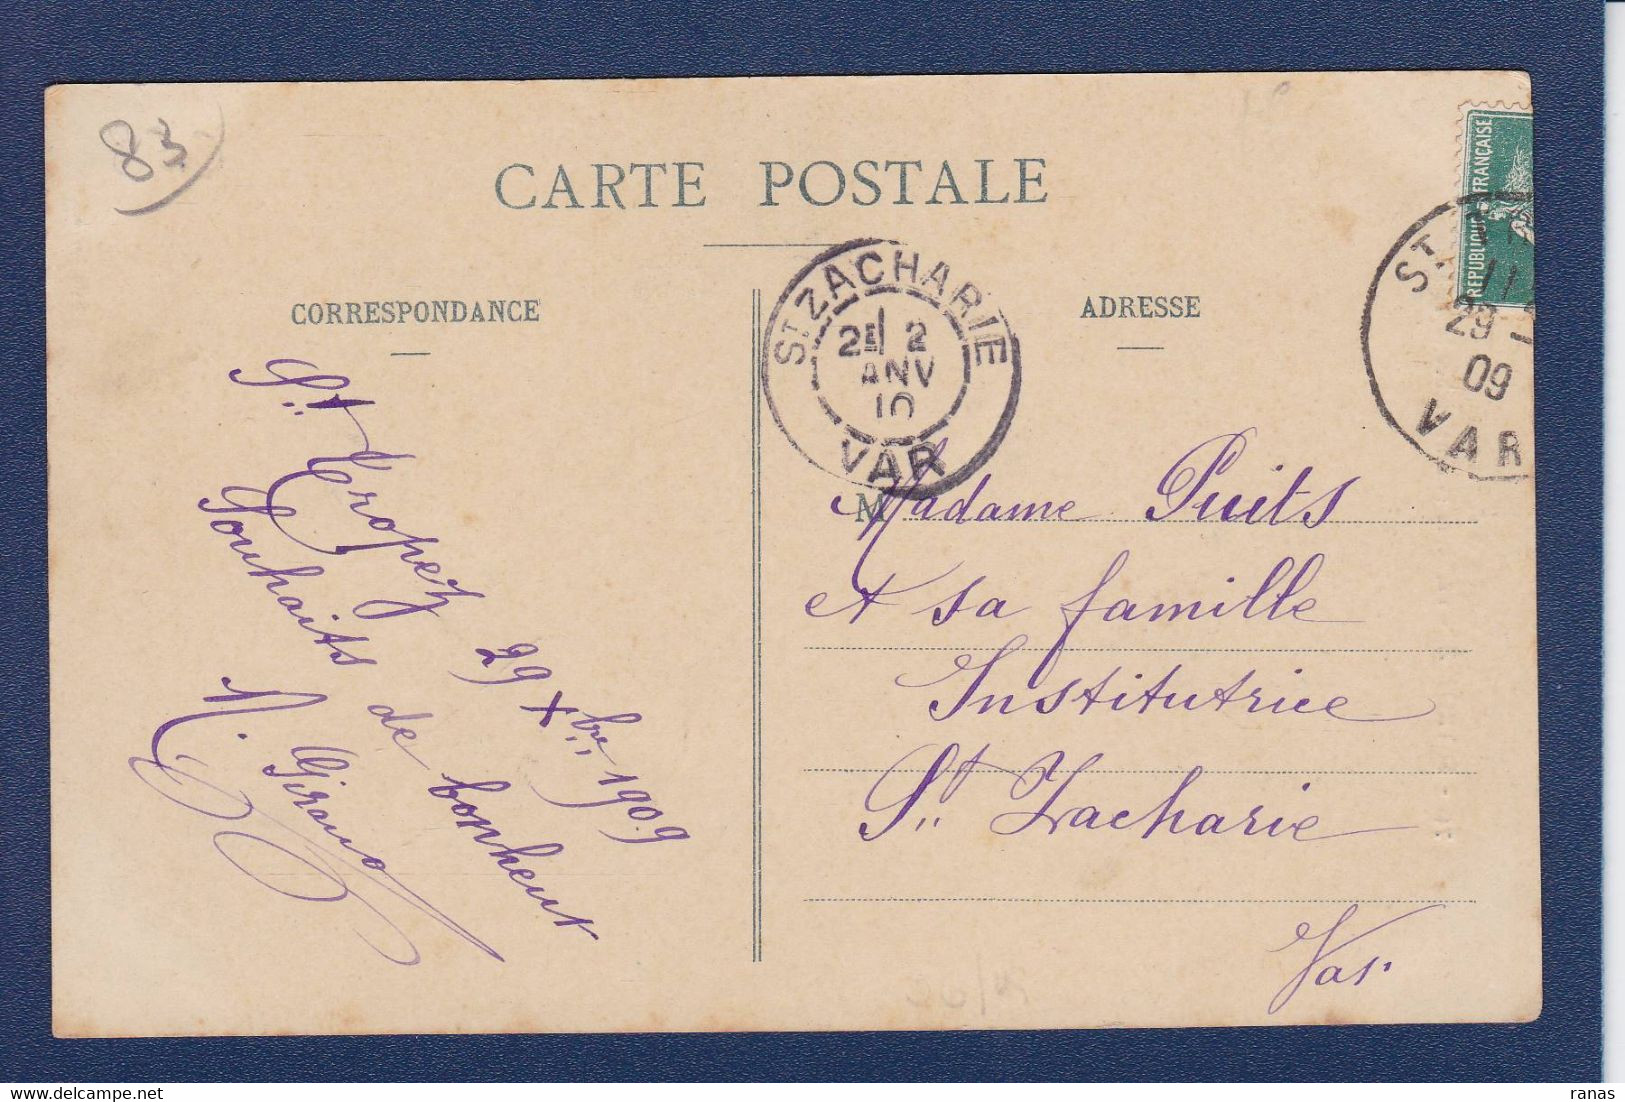 83
CARTE POSTALE
CORRESPONDANCE
ADRESSE
RÉPUBLIQUE FRANÇAISE
ST ZACHARIE
2E 2
ANV
10
VAR
ST.
11
29
09
VAR
St Tropez 29 Xbre 1909
Souhaits de bonheur
Giraud
M Madame Puits
et sa famille
Institutrice
St Zacharie
Var.
ranas